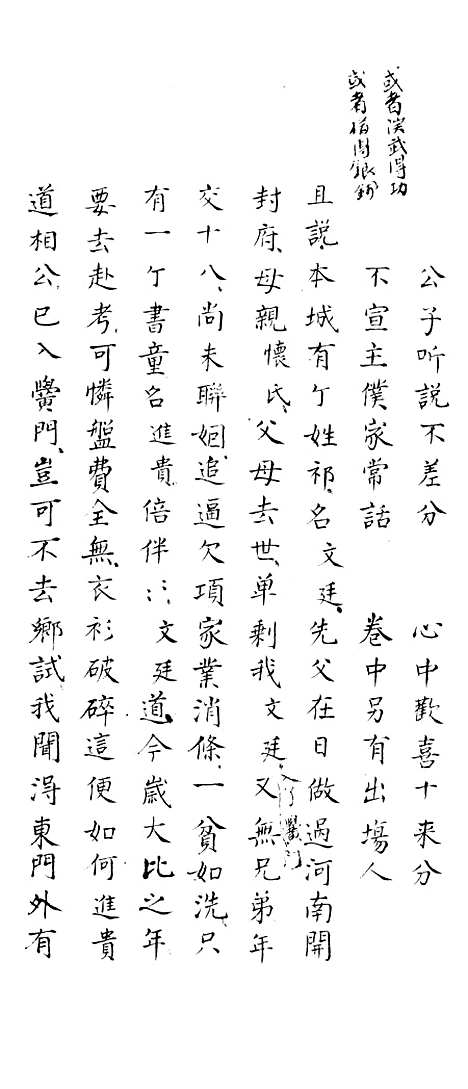 或者演武得功
或者借得銀
公子听説不差分　心中歡喜十来分
不宣主僕家常話　卷中另有出塲人
且説、本城有亇姓祁、名文廷、先父在日做過河南開
封府、母親懷氏、父母去世、单剩我文廷、入了黌门又無兄弟年
交十八、尚未聯姻、追逼欠項家業消條、一貧如洗、只
有一亇書童名進貴倍伴：：文廷道、今歲大比之年
要去赴考、可憐盤費全無、衣衫破碎這便如何進貴
道相公、已入黌門、豈可不去鄉試我聞淂東門外有